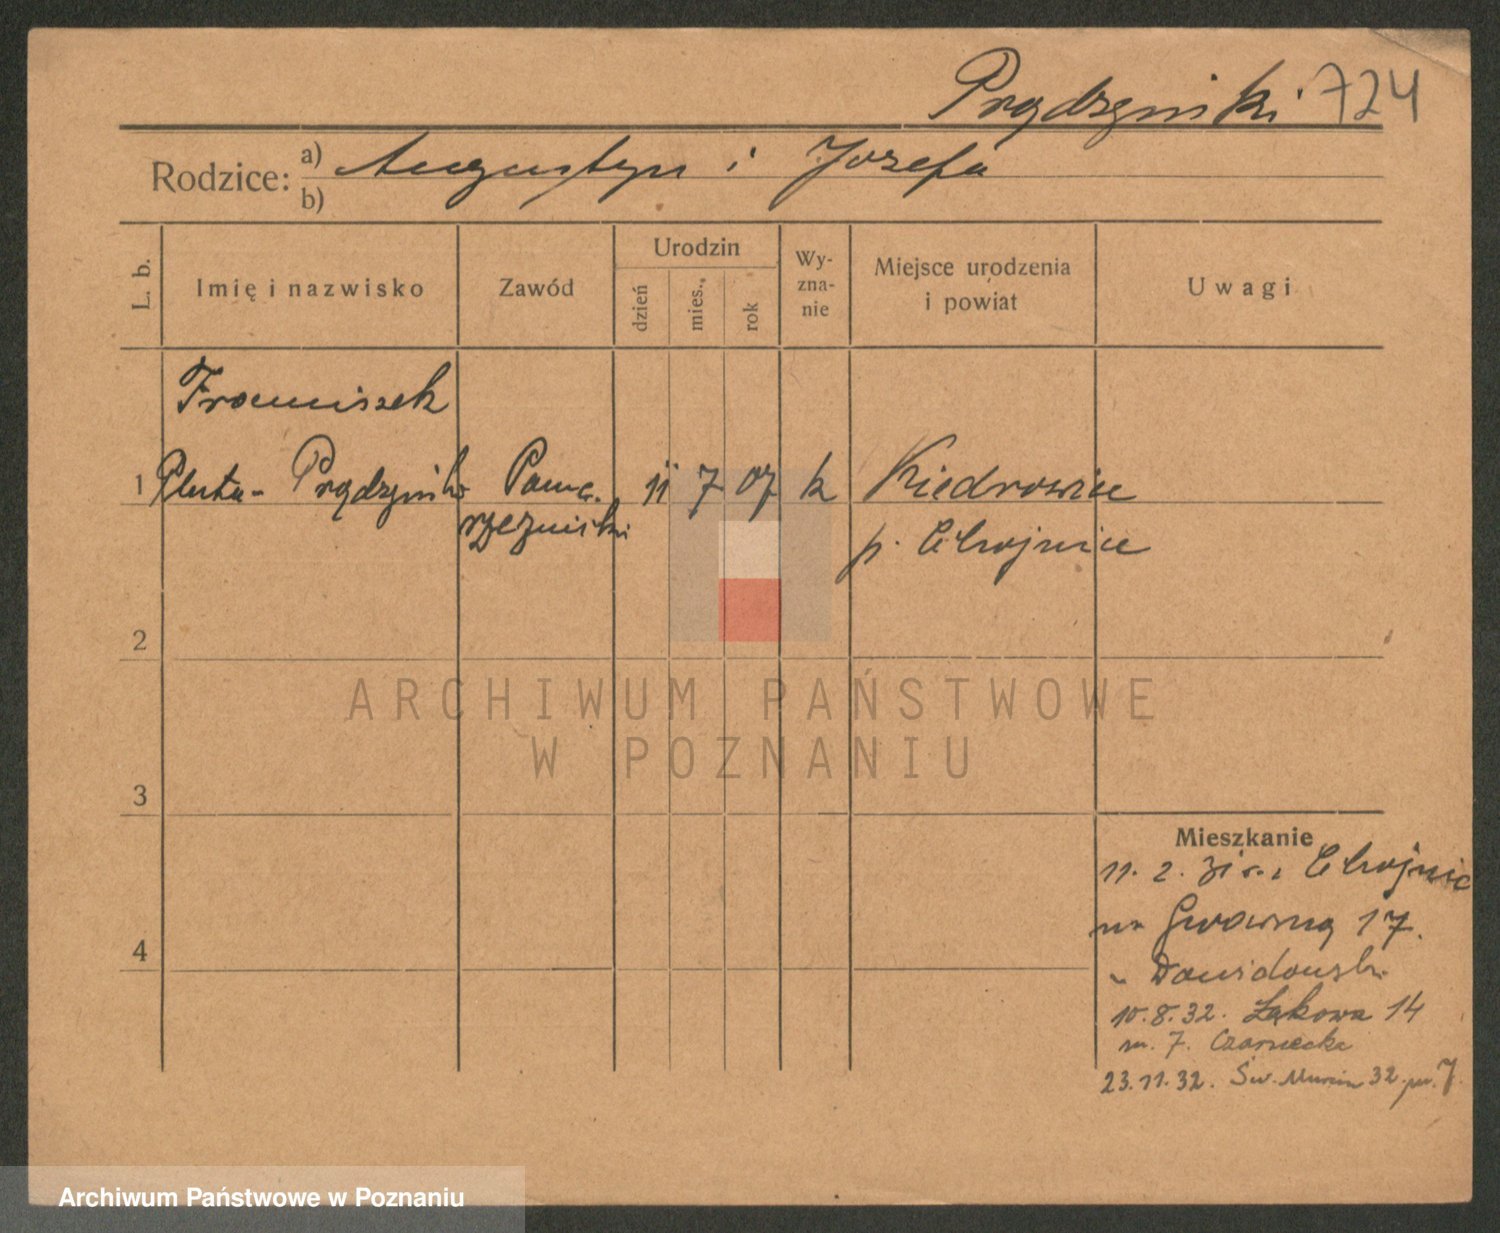 Prądzyński 724
Rodzice: a) Augustyn i Józefa
b)
L. b.
Imię i nazwisko
Zawód
Urodzin
dzień
mies.,
rok
Wy-
zna-
nie
Miejsce urodzenia
i powiat
Uwagi
Franciszek
1 Pluta- Prądzyński 11 7 07 k Kiedrowice
rzeźnicki p. Chojnice
2
ARCHIWUM PAŃSTWOWE
W POZNANIU
3
Mieszkanie
11. 2. 31 Chojnic
na Gwarną 17.
10.8.32. Łąkowa 14
m. 7. Czarnecka
23.11.32. Św. Marcin 32 7
4
Archiwum Państwowe w Poznaniu